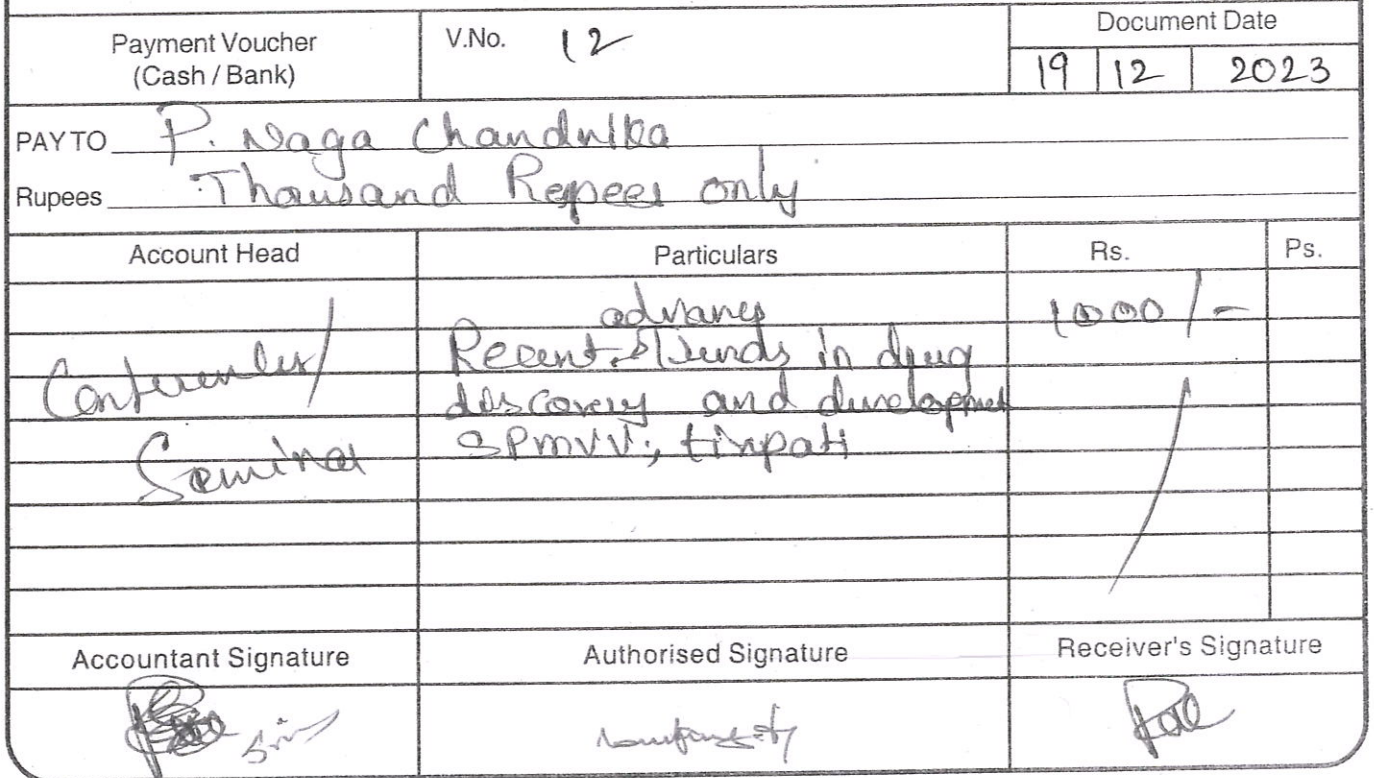 Payment Voucher
(Cash / Bank)
V.No. 12
Document Date
19 12 2023
PAY TO P. Naga Chandrika
Rupees Thousand Repees only
Account Head Particulars Rs. Ps.
advance 1000/-
Recent trends in drug
Conferences/
discovery and development
Seminar SPMVV, tirpati
Accountant Signature Authorised Signature Receiver's Signature